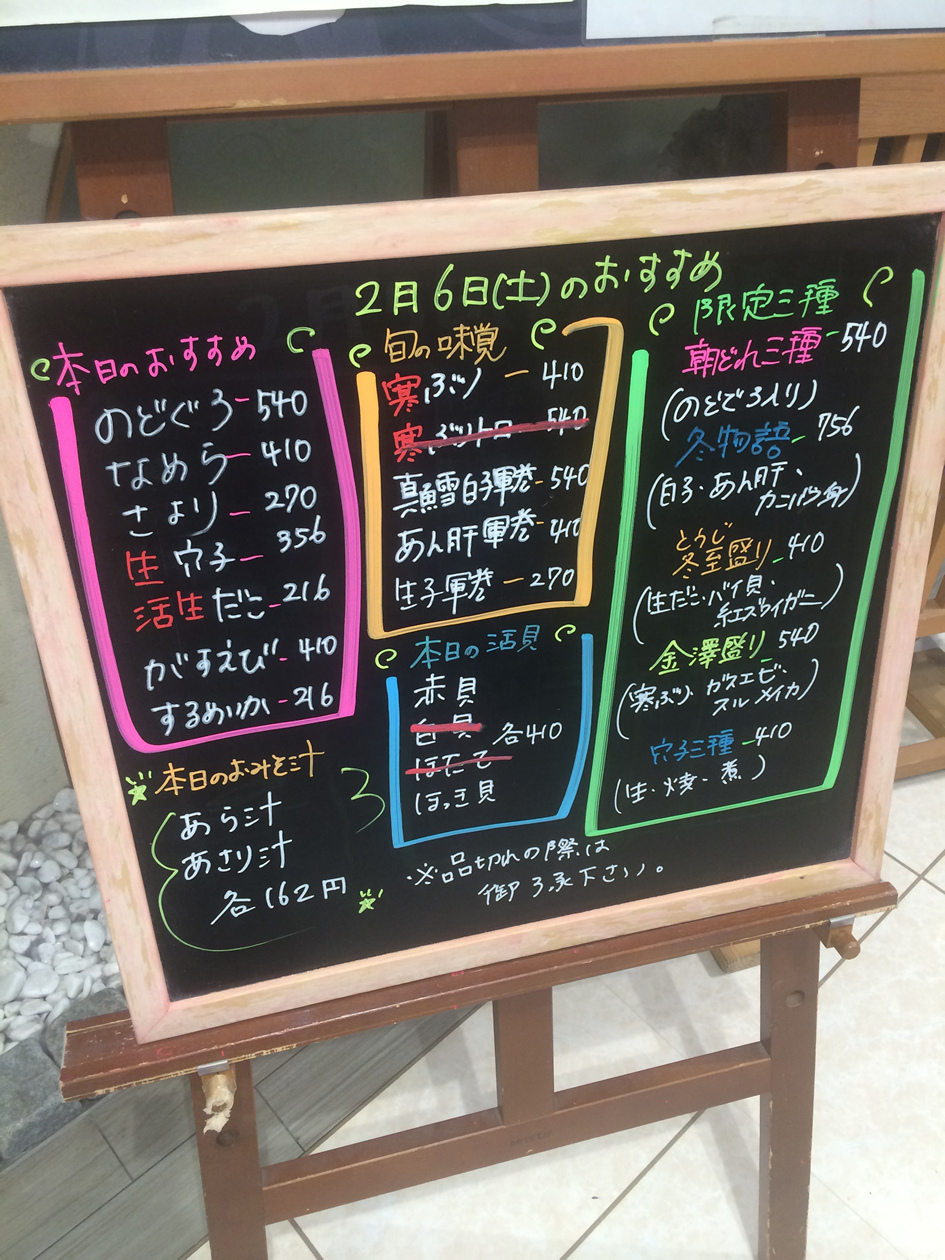 2月6日(土)のおすすめ
本日のおすすめ
のどぐろ-540
なめら-410
さより-270
生穴子-356
活生だこ-216
がすえび-410
するめいか-216
旬の味覚
寒ぶり-410
寒ぶりトロ-540
真鱈白子軍巻-540
あん肝軍巻-410
生子軍巻-270
本日の活貝
赤貝
白貝
各410
ほたて
ほっき貝
限定三種
朝どれ三種-540
(のどぐろ入り)
冬物語-756
(白子・あん肝・
カニバラ身)
とうじ
冬至盛り-410
(生だこ・バイ貝・
紅ズワイガニ)
金澤盛り-540
(寒ぶり・ガスエビ・
スルメイカ)
穴子三種-410
(生・焼・煮)
本日のおみそ汁
あら汁
あさり汁
各162円
※品切れの際は
御了承下さい。